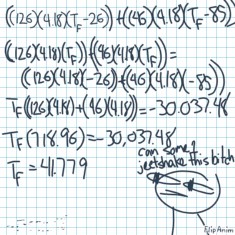 ((126)(4.18)(T_F-26))+((46)(4.18)(T_F-85))
((126)(4.18)(T_F))((46)(4.18)(T_F))=
((126)(4.18)(-26))+((46)(4.18)(-85))
T_F((126)(4.18)+(46)(4.18))=-30,037.48
T_F(718.96)=-30,037.48
T_F=41.779
can some1
jeetshake this bitch
FlipAnim